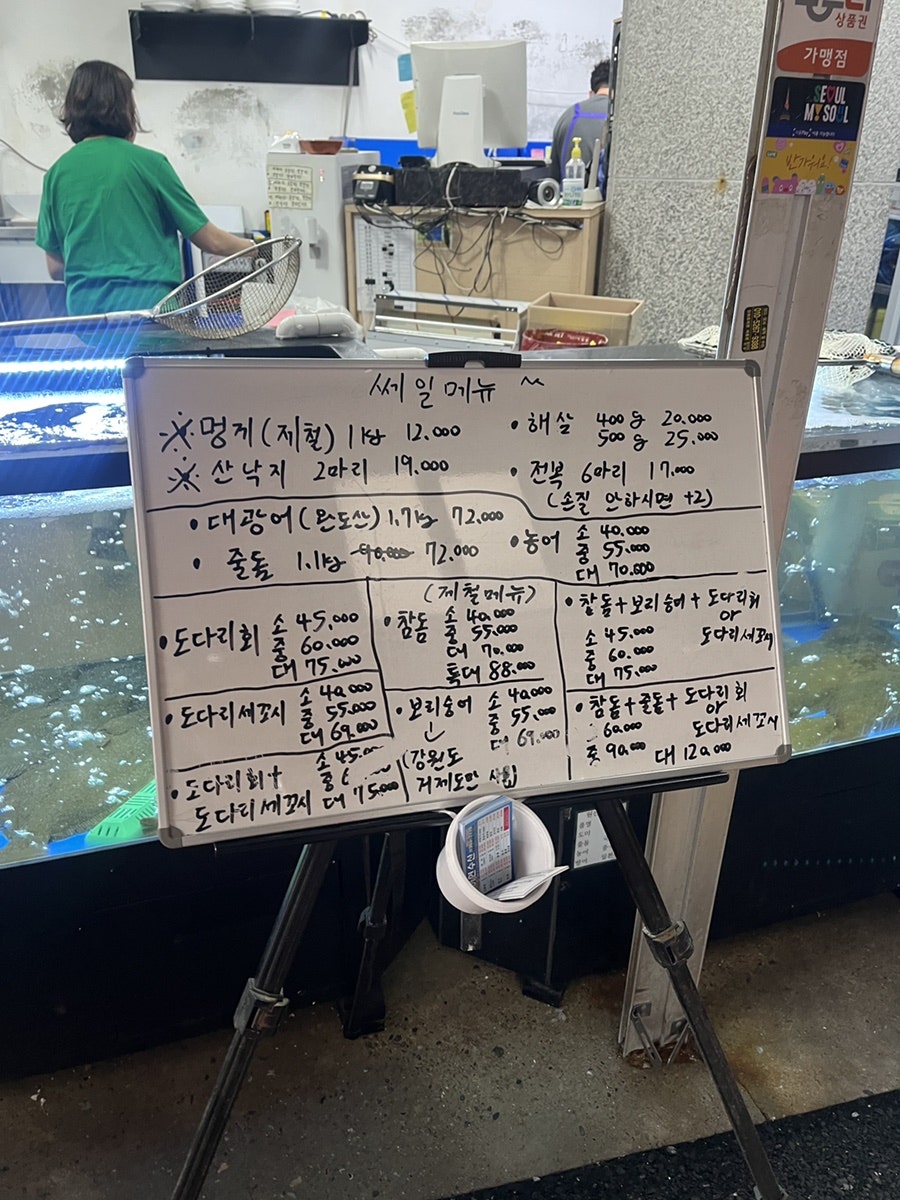 상품권
가맹점
SEOUL
MY SOUL
반가워요!
쎄일메뉴 ~
※ 멍게(제철) 1kg 12.000
※ 산낙지 2마리 19.000
• 해삼 400g 20.000
500g 25.000
• 전복 6마리 17.000
(손질 안하시면 +2)
• 대광어(완도산) 1.7kg 72.000
• 줄돔 1.1kg 90.000 72.000
• 농어 소 40.000
중 55.000
대 70.000
• 도다리회 소 45.000
중 60.000
대 75.000
(제철메뉴)
• 참돔 소 40.000
중 55.000
대 70.000
특대 88.000
• 참돔+보리숭어+도다리회
or
도다리세꼬시
소 45.000
중 60.000
대 75.000
• 도다리세꼬시 소 40.000
중 55.000
대 69.000
• 보리숭어 소 40.000
중 55.000
대 69.000
(강원도
거제도만
• 참돔+줄돔+도다리회
or
도다리세꼬시
60.000
중 90.000 대 120.000
• 도다리회+
도다리세꼬시
소 45.000
중 6
대 75.000